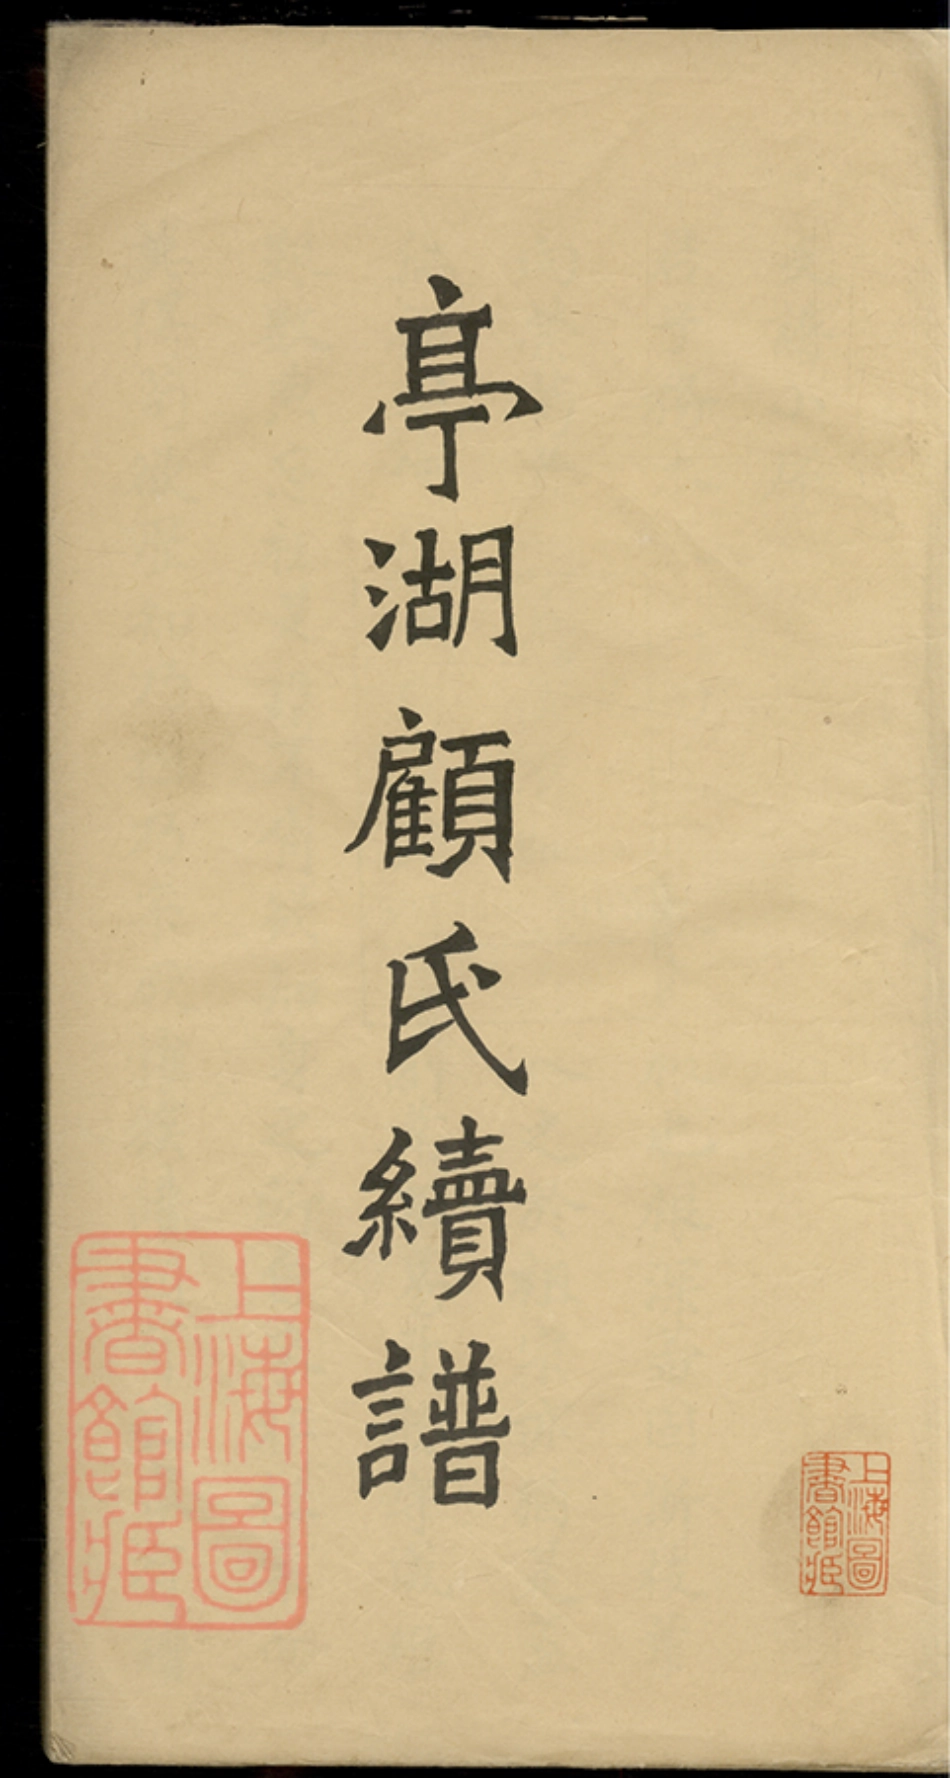 亭湖顧氏續譜
上海圖
書館藏
上海圖
書館藏